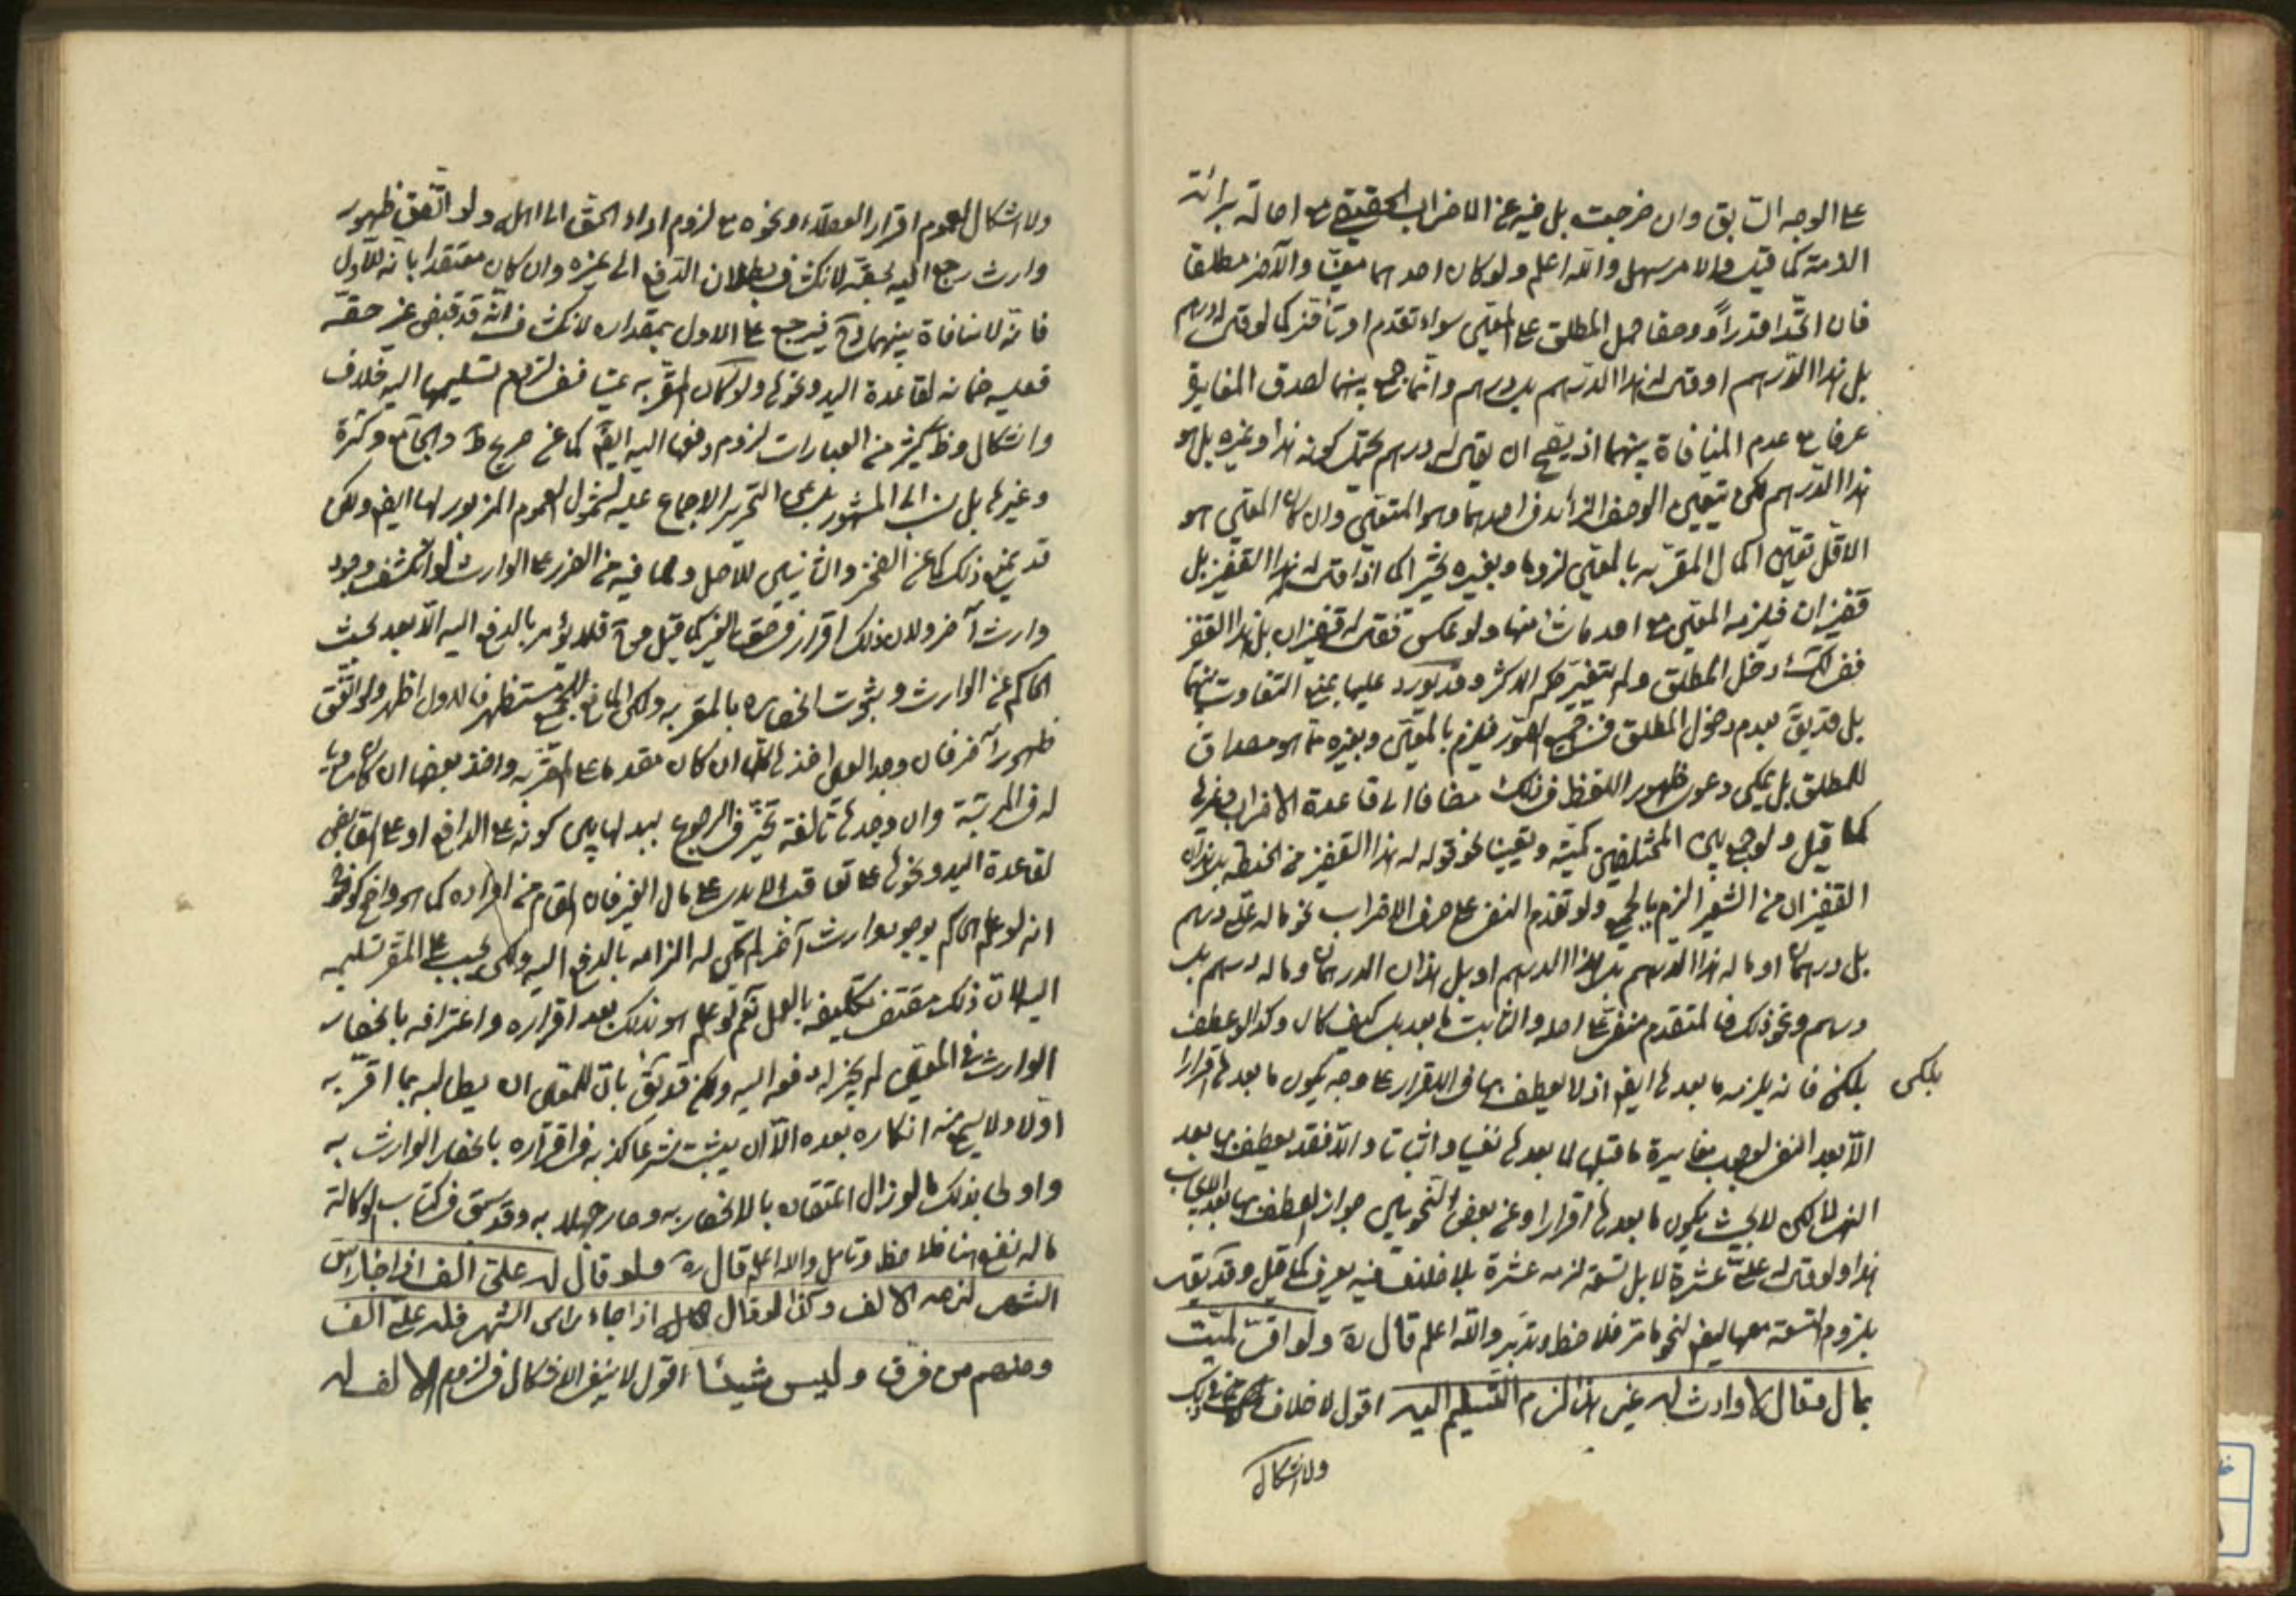 على الوجه السابق وان خرجت بل فيه عن الاضراب الحقيقي مع اصالة برائة
الذمة كما قيل والامر سهل والله اعلم ولو كان احدهما معينا والآخر مطلقا
فان اتحدا قدراً ووصفا حمل المطلق على المعين سواء تقدم او تأخر كما لو قال له درهم
بل هذا الدرهم او قال له هذا الدرهم بل درهم وانما جمع بينهما لصدق المغايرة
عرفا مع عدم المنافاة بينهما اذ يصح ان يقال له درهم يحتمل كونه هذا او غيره بل هو
هذا الدرهم لكن تعيين الوصف الزائد في احدهما وهو المتعين وان كان المعين هو
الاقل تعين اكمال المقر به بالمعين لزوما وبغيره تخييرا كما اذا قال له هذا القفيز بل
قفيزان فيلزمه المعين مع احد ما شاء منها ولو عكس فقال له قفيزان بل هذا القفيز
ففي دخل المطلق ولم يتغير حكم الاكثر وقد يورد عليها بمنع التفاوت بينهما
بل قد يق بعدم دخول المطلق في الصور فيلزم بالمعين وبغيره مما هو مصداق
للمطلق بل يمكن دعوى ظهور اللفظ في ذلك مضافا الى قاعدة الاضراب وغيرها
كما قيل ولو جمع بين المختلفين كمية وتعيينا نحو قوله له هذا القفيز من الحنطة بل هذان
القفيزان من الشعير الزم بالجميع ولو تقدم النفي على حرف الاضراب نحو ما له علي درهم
بل درهمان او ما له هذا الدرهم بل هذا الدرهم او بل هذان الدرهمان وما له درهم بل
درهم ونحو ذلك فالمتقدم منفي على اصله والثابت ما بعد بل كيف كان وكذا لو عطف
بلكن فانه يلزمه ما بعدها ايض اذ لا يعطف بها في الاقرار على وجه يكون ما بعدها اقرارا
بلكن
الا بعد النفي لوجوب مغايرة ما قبلها لما بعدها نفيا واثباتا والا فقد يعطف بها بعد
النهي لكن لا بحيث يكون ما بعدها اقرارا وعن بعض النحويين جواز العطف بها بعد الايجاب
هذا ولو قال له علي عشرة لا بل تسعة لزمه عشرة بلا خلاف فيه يعرف كما قيل وقد يق
بلزوم التسعة معها ايض لنحو ما مر فلاحظ وتدبر والله اعلم قال ره ولو اقر لميت
بمال وقال لا وارث له غير هذا لزم التسليم اليه اقول لا خلاف في ذلك
ولا اشكال
ولا اشكال لعموم اقرار العقلاء ونحوه مع لزوم اداء الحق الى اهله ولو اتفق ظهور
وارث رجع اليه بحقه لانكشاف بطلان الدفع الى غيره وان كان معتقدا بانه للاول
فانه لا منافاة بينهما فيرجع على الاول بمقداره لانكشاف انه قد قبض غير حقه
فعليه ضمانه لقاعدة اليد ونحوها ولو كان المقر به عينا ففي لزوم تسليمها اليه خلاف
واشكال وظ كثير من العبارات لزوم دفعها اليه ايض كما عن صريح ط والجامع وكرة
وغيرها بل نسب الى المشهور بل عن التحرير الاجماع عليه لشمول العموم المزبور لها ايض ولكن
قد يمنع ذلك كما عن الفخر والثانيين للاصل ولما فيه من الضرر على الوارث لو انكشف وجود
وارث آخر ولان ذلك اقرار في حق الغير كما قيل فلا يؤمر بالدفع اليه الا بعد بحث
الحاكم عن الوارث وبثبوت انحصاره بالمقر به ولكن المانع مستظهر فالاول اظهر ولو اتفق
ظهور آخر فان وجد العين اخذها كلا ان كان مقدما على المقر به واخذ بعضها ان كان مساويا
له في المرتبة وان وجدها تالفة تخير في الرجوع ببدلها بين كونه على الدافع او على القابض
لقاعدة اليد ونحوها على تعاقب الايدي على مال الغير فان المقام من افراده كما هو واضح
انه لو علم الحاكم بوجود وارث آخر لم يكن له الزامه بالدفع اليه ولكن يجب على المقر تسليمه
اليه لان ذلك مقتضى تكليفه بالعمل نعم لو علم هو بذلك بعد اقراره واعترافه بانحصار
الوارث في المعين لم يجز له دفعه اليه ولكن قد يق بان للمعين ان يطالبه بما اقر به
اولا ولا يسمع منه انكاره بعده الا ان يثبت شرعا كذبه في اقراره بانحصار الوارث به
واولى بذلك ما لو زال اعتقاده بالانحصار به وصار جهلا به وقد سبق في كتاب الوكالة
ما له نفع هنا فلاحظ وتامل والله اعلم قال ره ولو قال له علي الف اذا جاء راس
الشهر لزمه الالف وكذا لو قال اذا جاء راس الشهر فله علي الف
ومنهم من فرق وليس شيئا اقول لا ينبغي الاشكال في لزوم الالف له